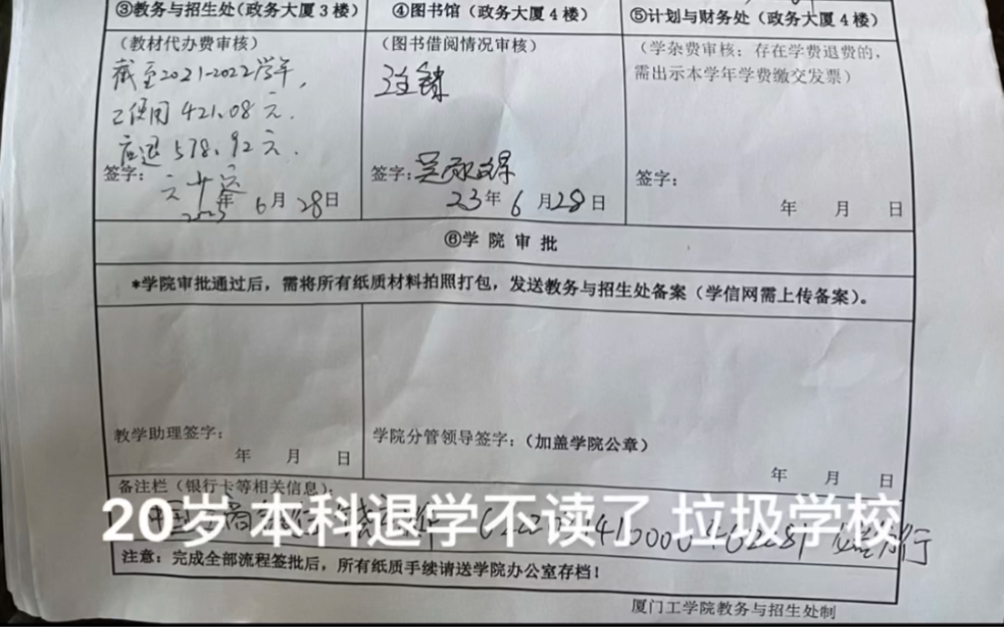 ③教务与招生处(政务大厦3楼)
④图书馆(政务大厦4楼)
⑤计划与财务处(政务大厦4楼)
(教材代办费审核)
截至2021-2022学年,
已使用421.08元.
应退578.92元.
签字:
2023年6月28日
(图书借阅情况审核)
签字:
23年6月28日
(学杂费审核:存在学费退费的,
需出示本学年学费缴交发票)
签字:
年 月 日
⑥学院审批
*学院审批通过后,需将所有纸质材料拍照打包,发送教务与招生处备案(学信网需上传备案)。
教学助理签字:
年 月 日
学院分管领导签字:(加盖学院公章)
年 月 日
备注栏(银行卡等相关信息):
20岁本科退学不读了 垃圾学校
注意:完成全部流程签批后,所有纸质手续请送学院办公室存档!
厦门工学院教务与招生处制